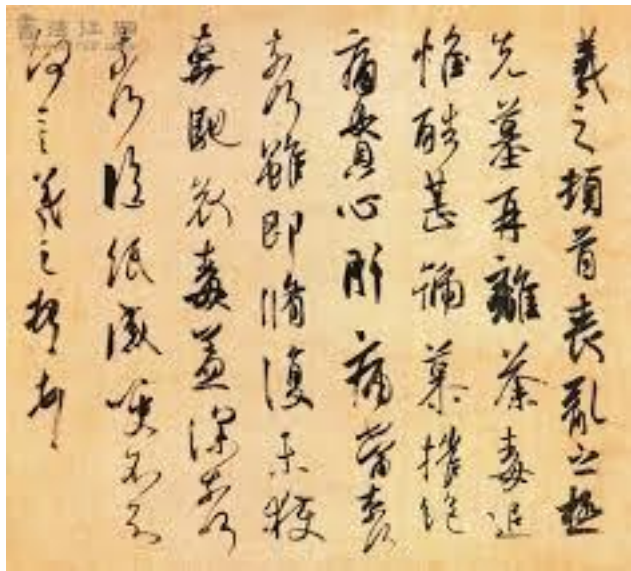 羲之頓首喪亂之極
先墓再離荼毒追
惟酷甚號慕摧絕
痛貫心肝痛當奈何
奈何雖即脩復未獲
奔馳哀毒益深奈何
奈何臨紙感哽不知
何言羲之頓首頓首
書法江湖